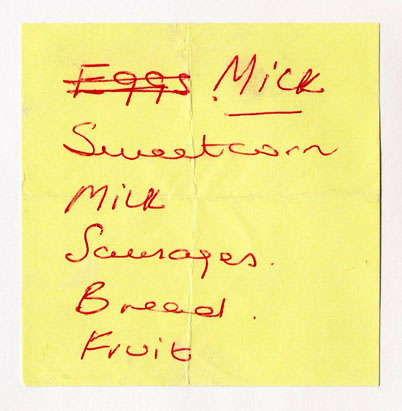 Eggs Milk
Sweetcorn
Milk
Sausages.
Bread.
Fruit